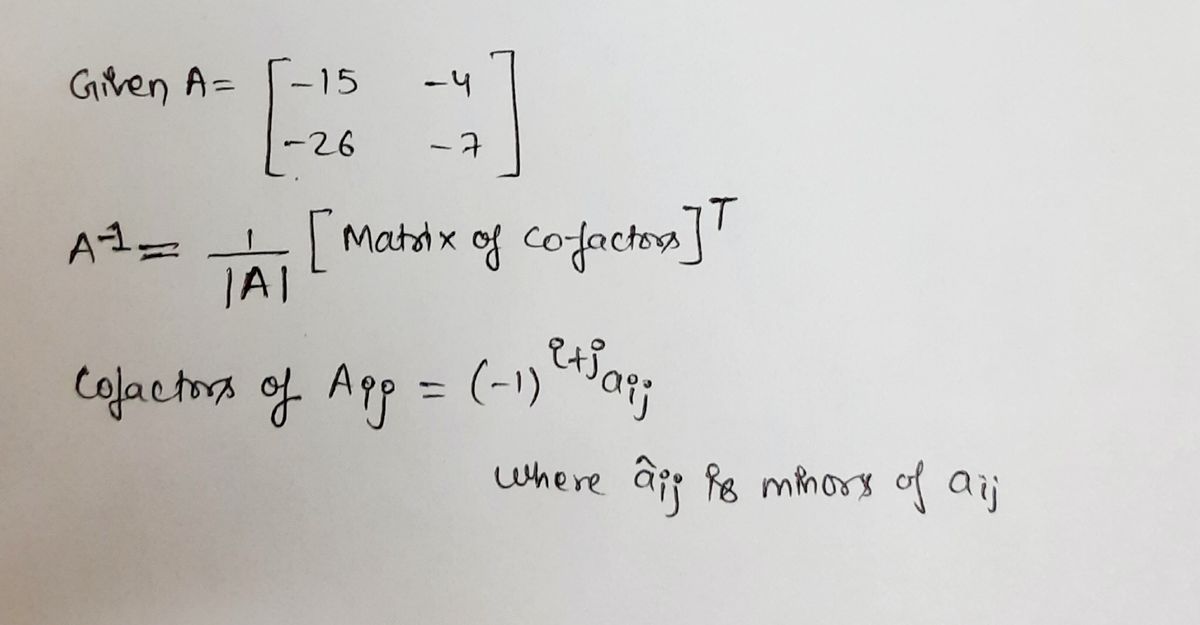 Given A = [ -15 -4
-26 -7 ]
A^-1 = 1/|A| [Matrix of cofactors]^T
Cofactors of Aij = (-1)^i+j aij
where âij is minors of aij